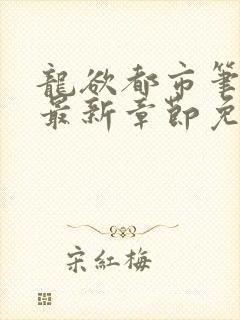 龍欲都市筆
最新章節免
宋紅梅